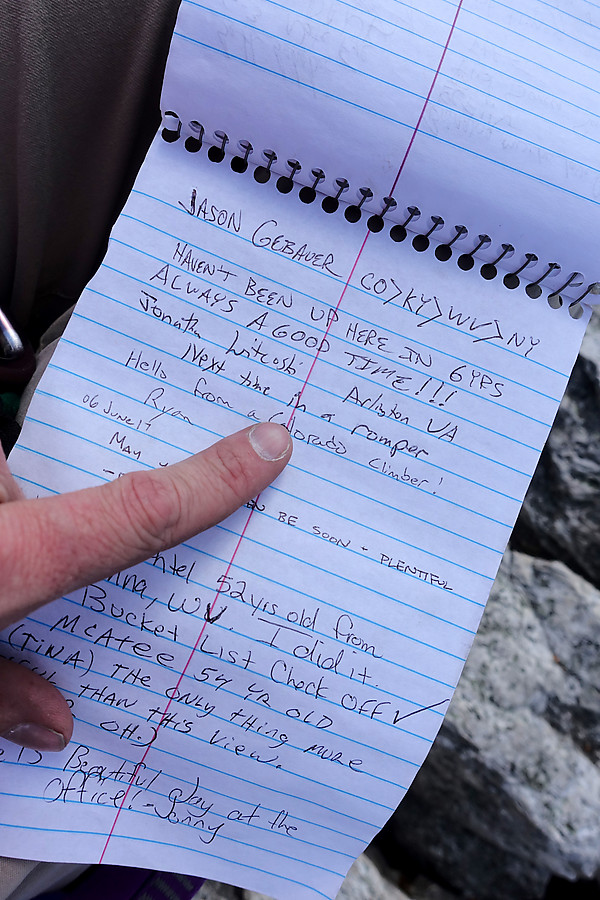 JASON GEBAUER CO>KY>WV>NY
HAVEN'T BEEN UP HERE IN 6YRS
ALWAYS A GOOD TIME!!!
Arlington VA
Next time in a romper
Hello from a Colorado climber!
Ryan
06 June 17
May
BE SOON + PLENTIFUL
52 yrs old from
WV. I did it
Bucket List Check OFF ✓
McAtee 54 YR OLD
(TINA) THE ONLY THING MORE
THAN THIS VIEW.
OH.)
Beautiful day at the
office! - Jonny